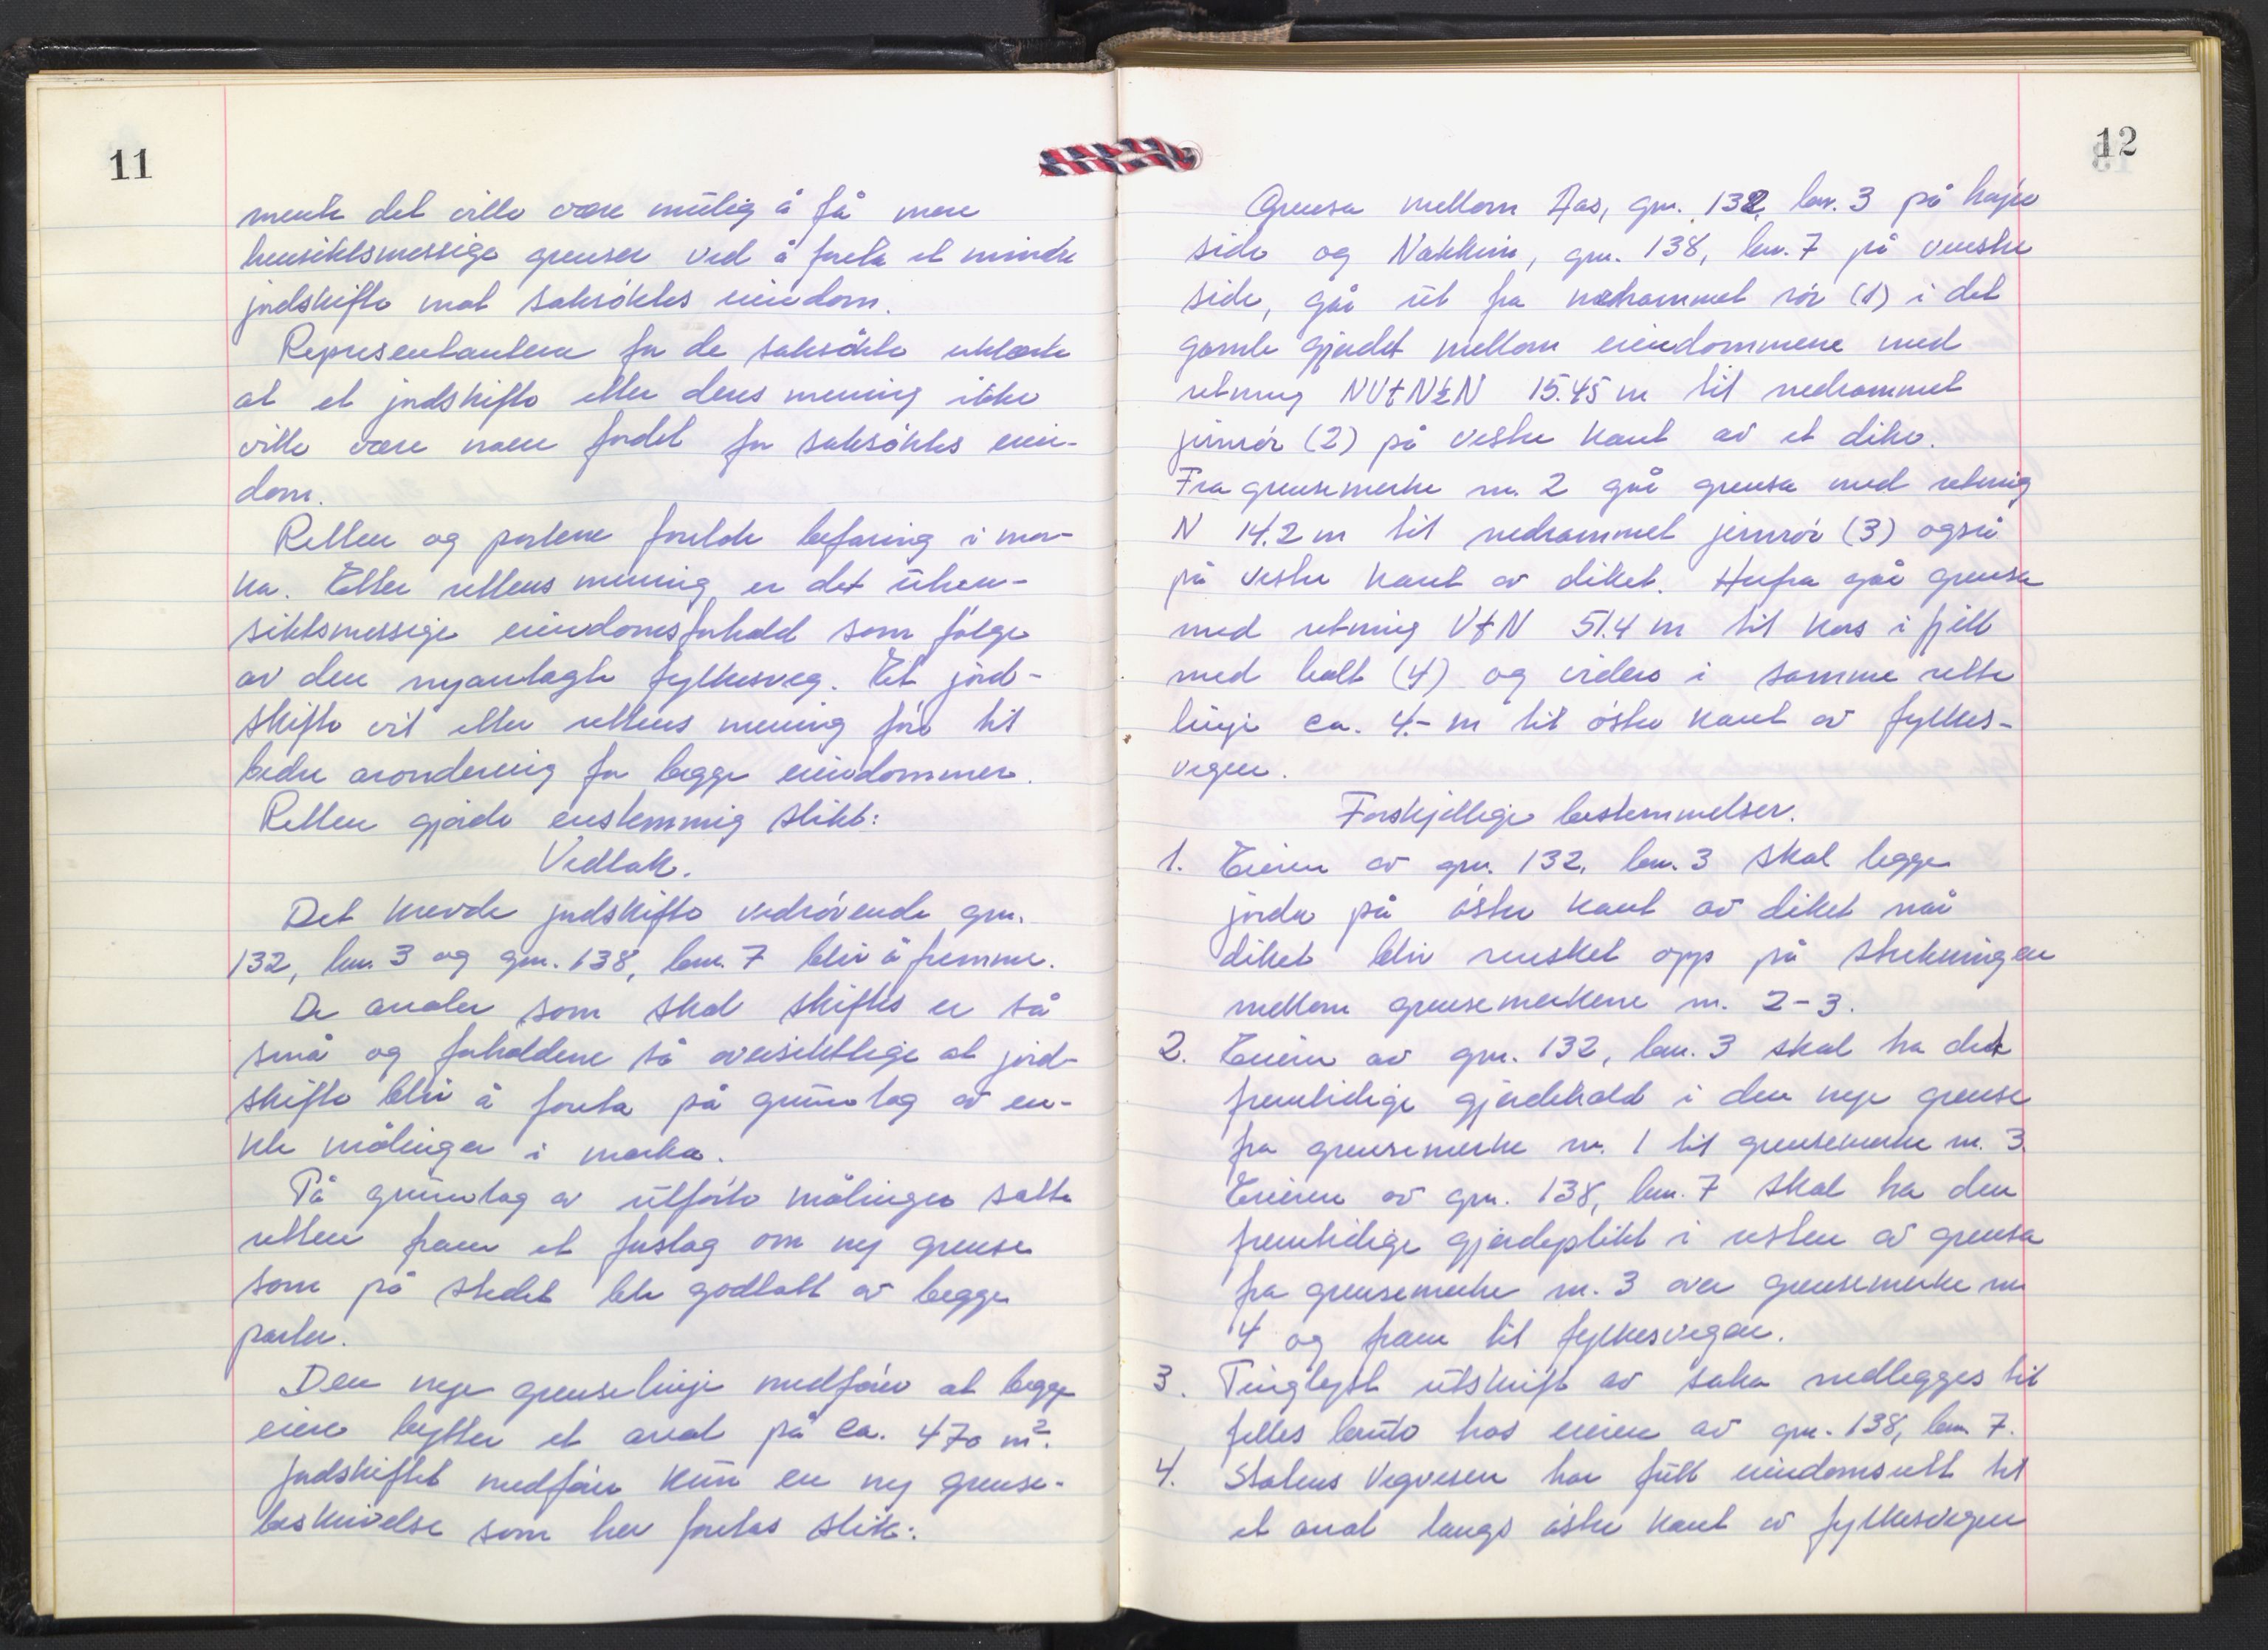 11
mente det ville være mulig å få mere
hensiktsmessige grenser ved å foreta et mindre
jordskifte mot saksøktes eiendom.
Representantene for de saksøkte erklærte
at et jordskifte etter deres mening ikke
ville være noen fordel for saksøktes eien-
dom.
Retten og partene foretok befaring i mar-
ka. Etter rettens mening er det uhen-
siktsmessige eiendomsforhold som følge
av den nyanlagte fylkesveg. Et jord-
skifte vil etter rettens mening føre til
bedre arondering for begge eiendommer.
Retten gjorde enstemmig slikt:
Vedtak.
Det krevde jordskifte vedrørende gnr.
132, bnr. 3 og gnr. 138, bnr. 7 blir å fremme.
De arealer som skal skiftes er så
små og forholdene så oversiktlige at jord-
skifte blir å foreta på grunnlag av en-
kle målinger i marka.
På grunnlag av utførte målinger satte
retten fram et forslag om ny grense
som på stedet ble godtatt av begge
parter.
Den nye grenselinje medfører at begge
eiere bytter et areal på ca. 470 m².
Jordskiftet medfører kun en ny grense-
beskrivelse som her foretas slik:
12
Grensa mellom Aas, gnr. 132, bnr. 3 på høyre
side og Nakkim, gnr. 138, bnr. 7 på venstre
side, går ut fra nedrammet rør (1) i det
gamle gjerdet mellom eiendommene med
retning NVtN½N 15.45 m til nedrammet
jernrør (2) på vestre kant av et dike.
Fra grensemerke nr. 2 går grensa med retning
N 14.2 m til nedrammet jernrør (3) også
på vestre kant av diket. Herfra går grensa
med retning VtN 51.4 m til kors i fjell
med bolt (4) og videre i samme rette
linje ca. 4.- m til østre kant av fylkes-
vegen.
Forskjellige bestemmelser.
1. Eieren av gnr. 132, bnr. 3 skal legge
jorda på østre kant av diket når
diket blir rensket opp på strekningen
mellom grensemerkene nr. 2-3.
2. Eieren av gnr. 132, bnr. 3 skal ha det
fremtidige gjerdehold i den nye grense
fra grensemerke nr. 1 til grensemerke nr. 3.
Eieren av gnr. 138, bnr. 7 skal ha den
fremtidige gjerdeplikt i resten av grensa
fra grensemerke nr. 3 over grensemerke nr.
4 og fram til fylkesvegen.
3. Tinglyst utskrift av saka nedlegges til
felles bruk hos eieren av gnr. 138, bnr. 7.
4. Statens Vegvesen har full eiendomsrett til
et areal langs østre kant av fylkesvegen